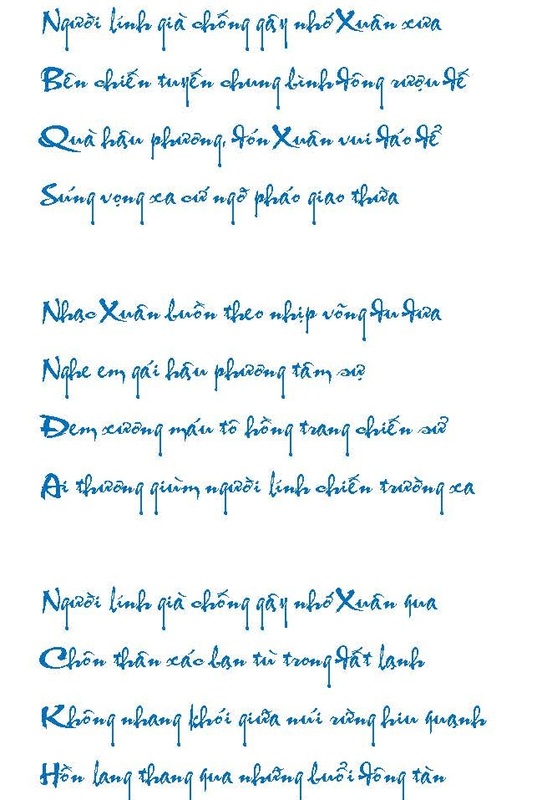 Người lính già chống gậy nhớ Xuân xưa
Bên chiến tuyến chung bình đông rượu đế
Quà hậu phương, đón Xuân vui đáo để
Súng vọng xa cứ ngỡ pháo giao thừa
Nhạc Xuân buồn theo nhịp võng đu đưa
Nghe em gái hậu phương tâm sự
Đem xương máu tô hồng trang chiến sử
Ai thương giùm người lính chiến trường xa
Người lính già chống gậy nhớ Xuân qua
Chôn thân xác bạn tù trong đất lạnh
Không nhang khói giữa núi rừng hiu quạnh
Hồn lang thang qua những buổi đông tàn